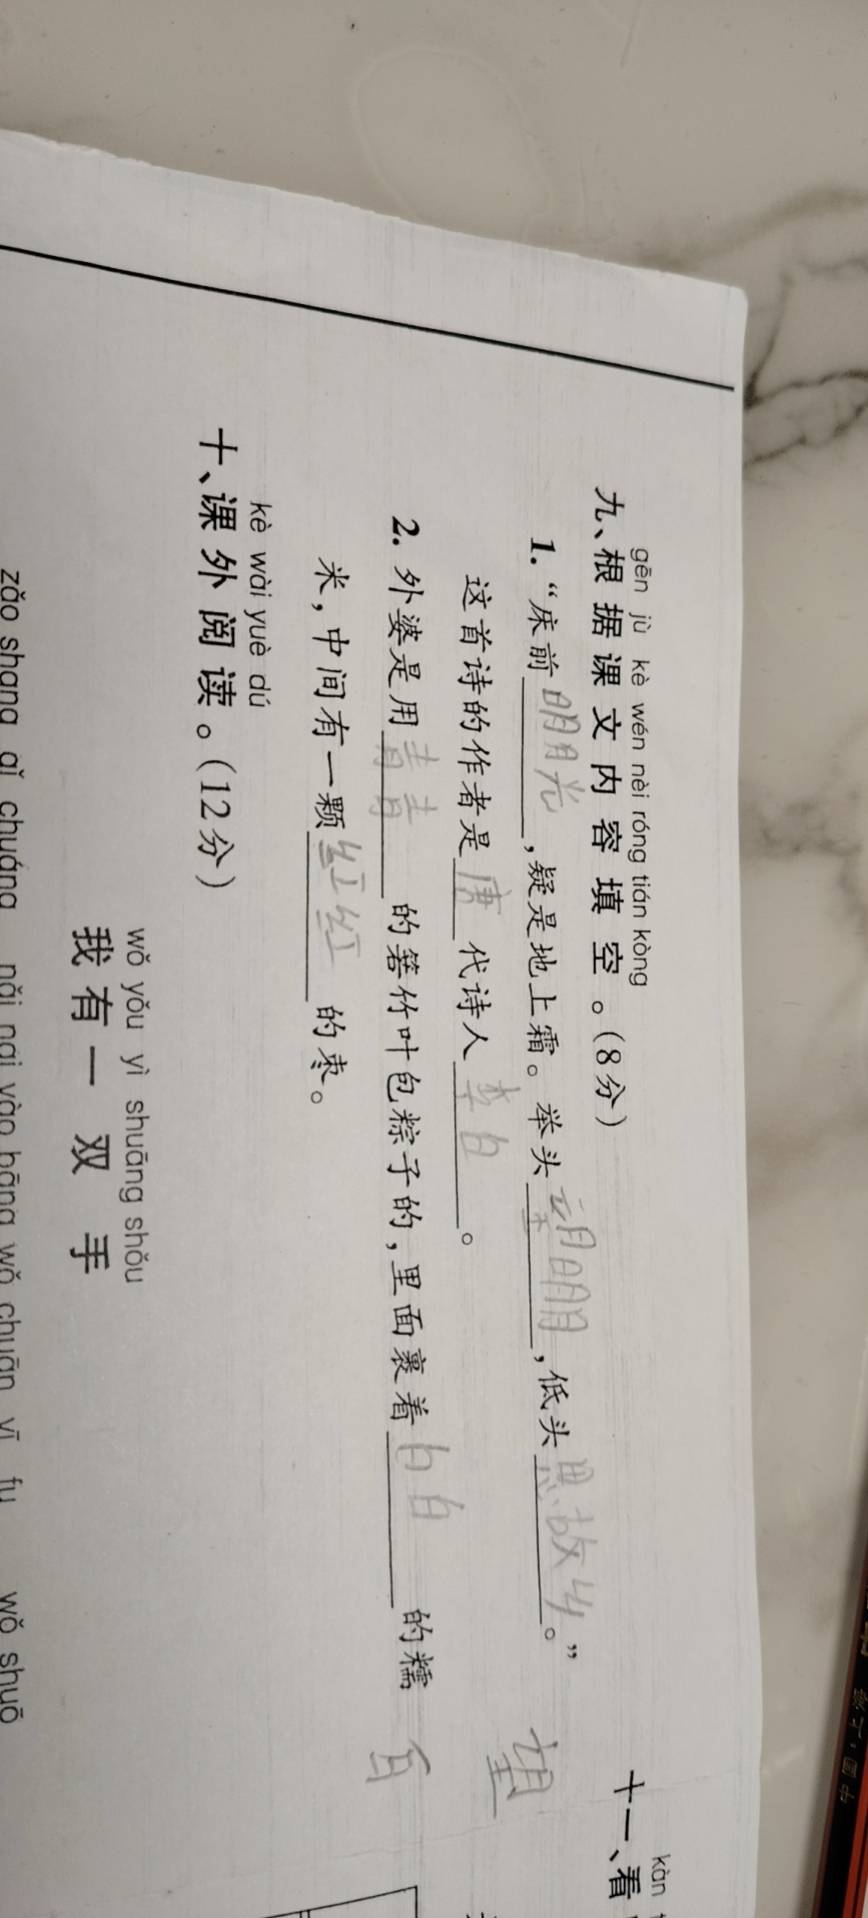 gēn jù kè wén nèi róng tián kòng
九、根据课文内容填空。(8分)
1.“床前明月光,疑是地上霜。举头望明月,低头思故乡。”
这首诗的作者是唐代诗人李白。
望
2.外婆是用青青的箬竹叶包粽子的,里面裹着白白的糯
米,中间有一颗红红的枣。
kè wài yuè dú
十、课外阅读。(12分)
wǒ yǒu yì shuāng shǒu
我有一双手
zǎo shang qǐ chuáng nǎi nai yào bāng wǒ chuān yī fu wǒ shuō
kàn
十一、看